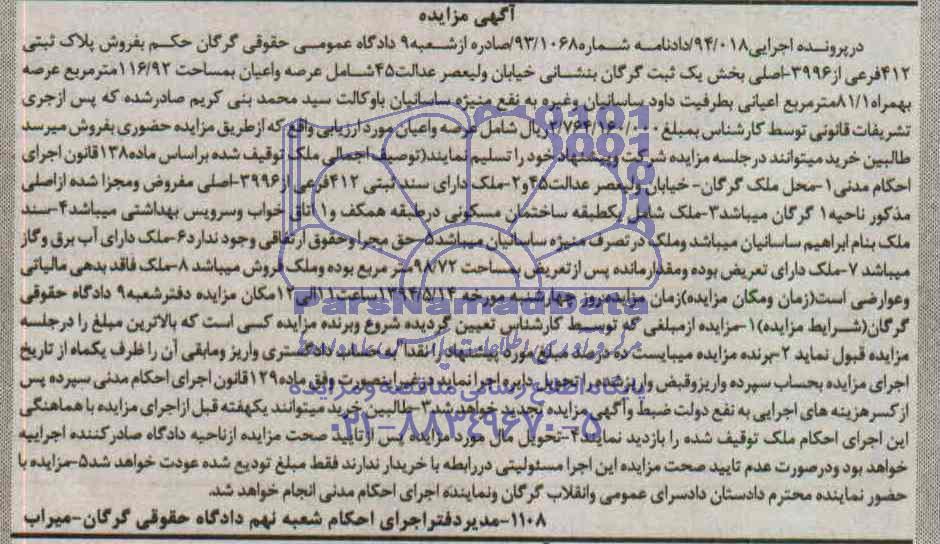 آگهی مزایده
درپرونده اجرایی۹۴/۰۱۸/دادنامه شماره۹۳/۱۰۶۸/صادره ازشعبه۹ دادگاه عمومی حقوقی گرگان حکم بفروش پلاک ثبتی
۴۱۲فرعی از۳۹۹۶-اصلی بخش یک ثبت گرگان بنشانی خیابان ولیعصر عدالت۴۵شامل عرصه واعیان بمساحت ۱۱۶/۹۲مترمربع عرصه
بهمراه۸۱/۱مترمربع اعیانی بطرفیت داود ساسانیان وغیره به نفع منیژه ساسانیان باوکالت سید محمد بنی کریم صادرشده که پس ازجری
تشریفات قانونی توسط کارشناس بمبلغ ۲/۷۶۴/۱۶۰/۰۰۰ریال شامل عرصه واعیان مورد ارزیابی واقع که ازطریق مزایده حضوری بفروش میرسد
طالبین خرید میتوانند درجلسه مزایده شرکت وپیشنهاد خود را تسلیم نمایند(توصیف اجمالی ملک توقیف شده براساس ماده۱۳۸قانون اجرای
احکام مدنی۱-محل ملک گرگان- خیابان ولیعصر عدالت۴۵و۲-ملک دارای سند ثبتی ۴۱۲فرعی از۳۹۹۶-اصلی مفروض ومجزا شده ازاصلی
مذکور ناحیه۱ گرگان میباشد۳-ملک شامل یکطبقه ساختمان مسکونی درطبقه همکف و۱ اتاق خواب وسرویس بهداشتی میباشد۴-سند
ملک بنام ابراهیم ساسانیان میباشد وملک درتصرف منیژه ساسانیان میباشد۵-حق مجرا وحقوق ارتفاقی وجود ندارد۶-ملک دارای آب برق وگاز
میباشد ۷-ملک دارای تعریض بوده ومقدارمانده پس ازتعریض بمساحت ۹۸/۷۲متر مربع بوده وملک فروش میباشد ۸-ملک فاقد بدهی مالیاتی
وعوارضی است(زمان ومکان مزایده)زمان مزایده‌روز چهارشنبه مورخه ۱۳۹۴/۵/۱۴ساعت۱۱الی۱۲مکان مزایده دفترشعبه۹ دادگاه حقوقی
گرگان(شرایط مزایده)۱-مزایده ازمبلغی که توسط کارشناس تعیین گردیده شروع وبرنده مزایده کسی است که بالاترین مبلغ را درجلسه
مزایده قبول نماید ۲-برنده مزایده میبایست ده درصد مبلغ مورد پیشنهاد را نقدا به حساب دادگستری واریز ومابقی آن را ظرف یکماه از تاریخ
اجرای مزایده بحساب سپرده واریزوقبض واریزشده را تحویل دایره اجرا نماید درغیر اینصورت وفق ماده۱۲۹قانون اجرای احکام مدنی سپرده پس
ازکسرهزینه های اجرایی به نفع دولت ضبط وآگهی مزایده تجدید خواهد شد۳-طالبین خرید میتوانند یکهفته قبل ازاجرای مزایده با هماهنگی
این اجرای احکام ملک توقیف شده را بازدید نمایند۴-تحویل مال مورد مزایده پس ازتایید صحت مزایده ازناحیه دادگاه صادر کننده اجراییه
خواهد بود ودرصورت عدم تایید صحت مزایده این اجرا مسئولیتی دررابطه با خریدار ندارند فقط مبلغ تودیع شده عودت خواهد شد۵-مزایده با
حضور نماینده محترم دادستان دادسرای عمومی وانقلاب گرگان ونماینده اجرای احکام مدنی انجام خواهد شد.
۱۱۰۸-مدیردفتراجرای احکام شعبه نهم دادگاه حقوقی گرگان-میراب
ParsNamadData
پایگاه اطلاع رسانی مناقصه و مزایده
۰۲۱-۸۸۳۴۹۶۷۰-۵